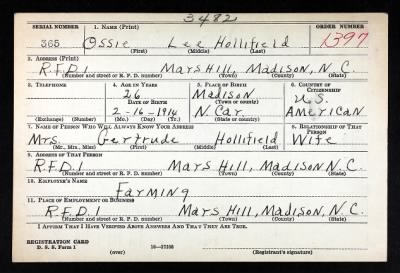 3482
SERIAL NUMBER 1. NAME (Print) ORDER NUMBER
365 Ossie Lee Hollifield 1597
(First) (Middle) (Last)
2. ADDRESS (Print)
R.F.D.1 Mars Hill, Madison, N.C.
(Number and street or R. F. D. number) (Town) (County) (State)
3. TELEPHONE 4. AGE IN YEARS 5. PLACE OF BIRTH 6. COUNTRY OF CITIZENSHIP
26 Madison U.S.
DATE OF BIRTH (Town or county)
2-16-1914 N. Car. American
(Exchange) (Number) (Mo.) (Day) (Yr.) (State or country)
7. NAME OF PERSON WHO WILL ALWAYS KNOW YOUR ADDRESS 8. RELATIONSHIP OF THAT PERSON
Mrs Gertrude Hollifield Wife
(Mr., Mrs., Miss) (First) (Middle) (Last)
9. ADDRESS OF THAT PERSON
R.F.D.1 Mars Hill, Madison N.C.
(Number and street or R. F. D. number) (Town) (County) (State)
10. EMPLOYER'S NAME
Farming
11. PLACE OF EMPLOYMENT OR BUSINESS
R.F.D.1 Mars Hill, Madison, N.C.
(Number and street or R. F. D. number) (Town) (County) (State)
I AFFIRM THAT I HAVE VERIFIED ABOVE ANSWERS AND THAT THEY ARE TRUE.
REGISTRATION CARD
D. S. S. Form 1 16-17105
(over) (Registrant's signature)